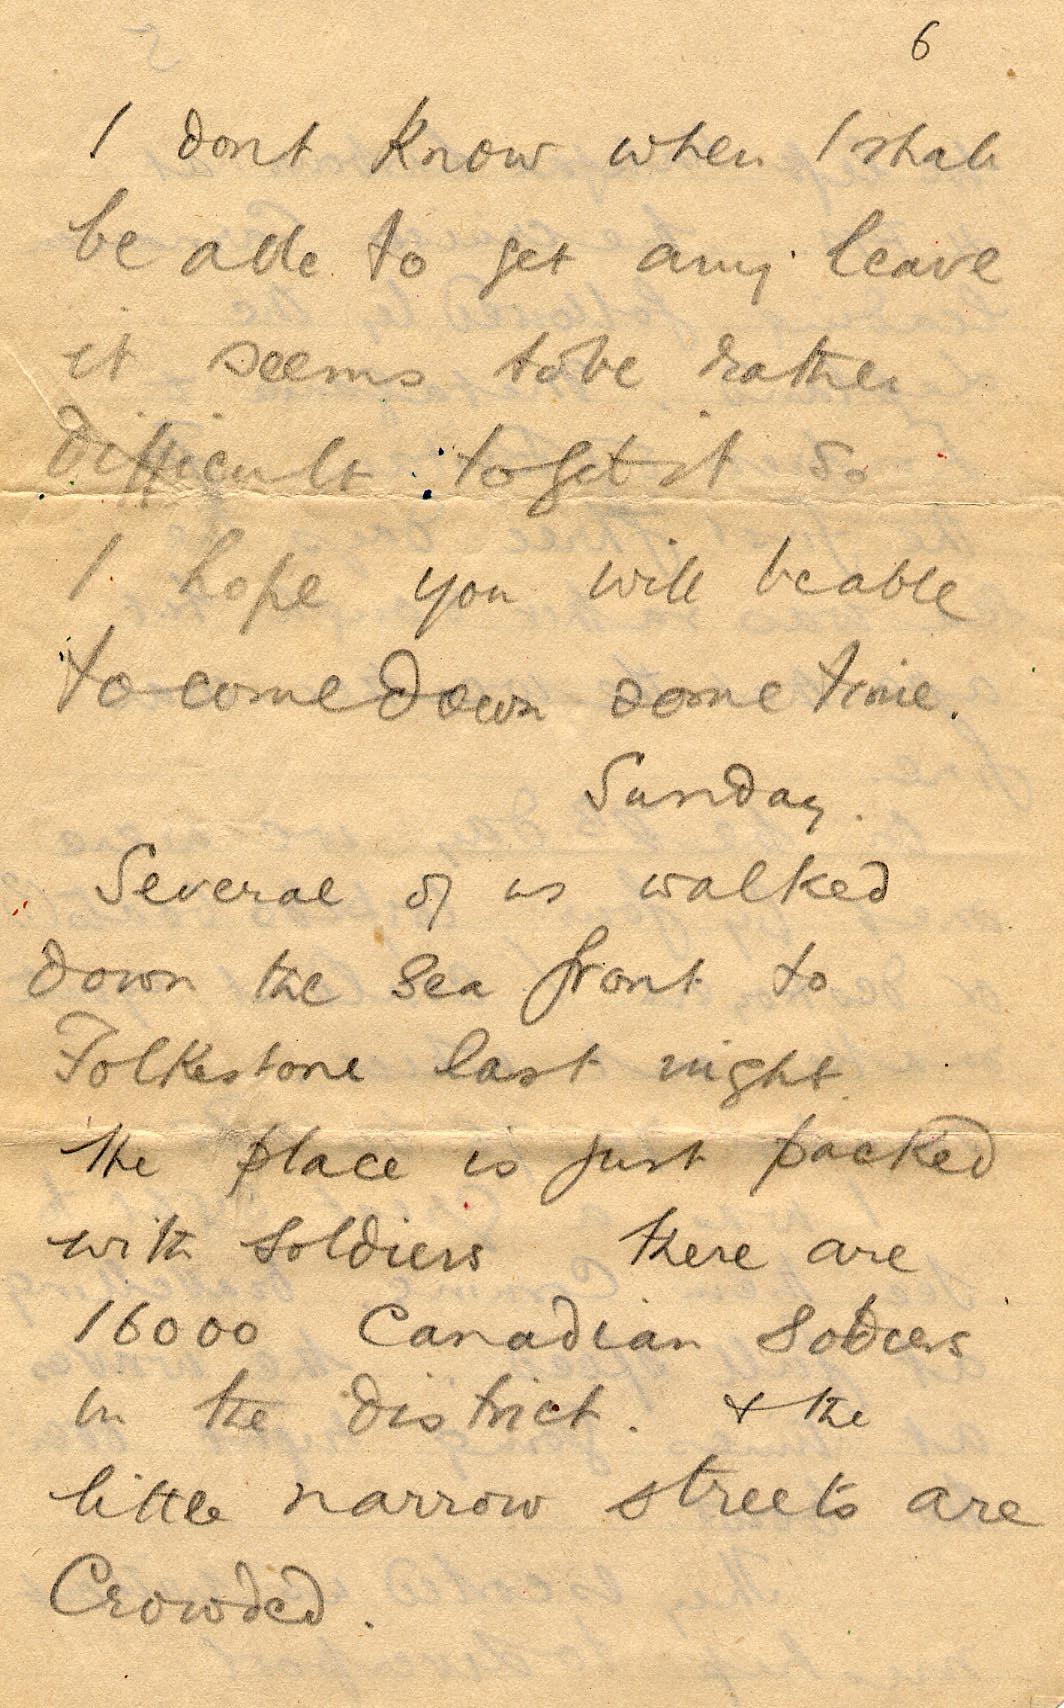 6
I dont know when I shall
be able to get any leave
it seems to be rather
difficult to get it so
I hope you will be able
to come down some time.
Sunday.
Several of us walked
down the Sea front to
Folkestone last night.
the place is just packed
with soldiers there are
16000 Canadian Soldiers
in the district. & the
little narrow streets are
Crowded.